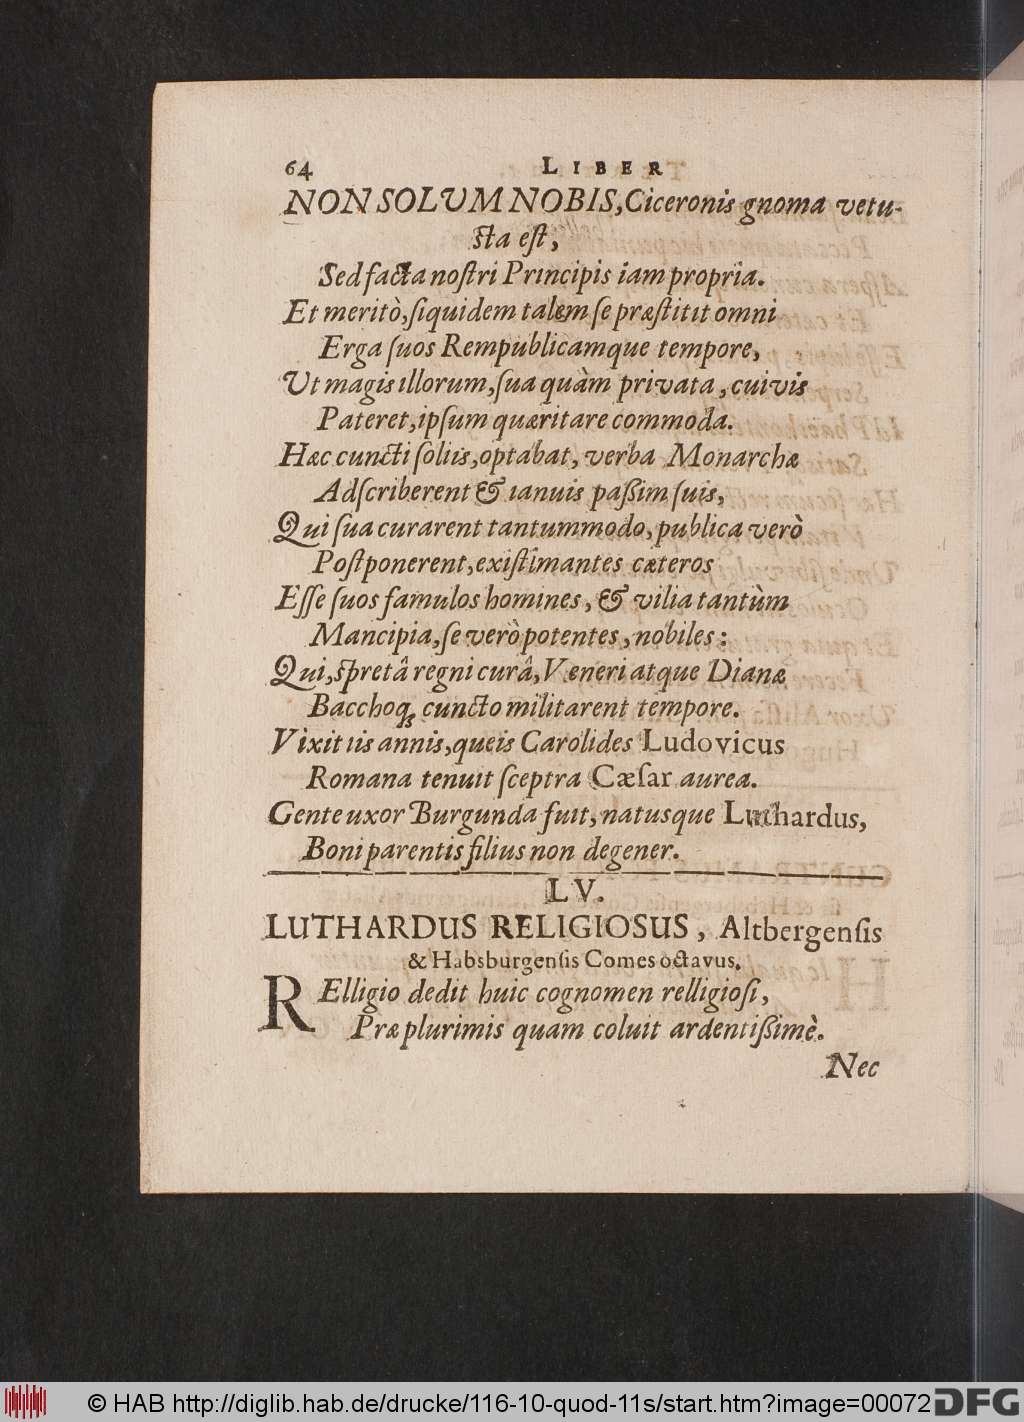 64 LIBER
NON SOLUM NOBIS, Ciceronis gnoma vetu-
sta est,
Sed facta nostri Principis iam propria.
Et meritò, siquidem talem se præstitit omni
Erga suos Rempublicamque tempore,
Ut magis illorum, sua quàm privata, cuivis
Pateret, ipsum quæritare commoda.
Hæc cuncti soliis, optabat, verba Monarchæ
Adscriberent & ianuis paßim suis,
Qui sua curarent tantummodo, publica verò
Postponerent, existimantes cæteros
Esse suos famulos homines, & vilia tantùm
Mancipia, se verò potentes, nobiles:
Qui, spretâ regni curâ, Veneri atque Dianæ
Bacchoq́; cuncto militarent tempore.
Vixit iis annis, queis Carolides Ludovicus
Romana tenuit sceptra Cæsar aurea.
Gente uxor Burgunda fuit, natusque Luthardus,
Boni parentis filius non degener.
LV.
LUTHARDUS RELIGIOSUS, Altbergensis
& Habsburgensis Comes octavus.
RElligio dedit huic cognomen relligiosi,
Præ plurimis quam coluit ardentißimè.
Nec
© HAB http://diglib.hab.de/drucke/116-10-quod-11s/start.htm?image=00072
DFG